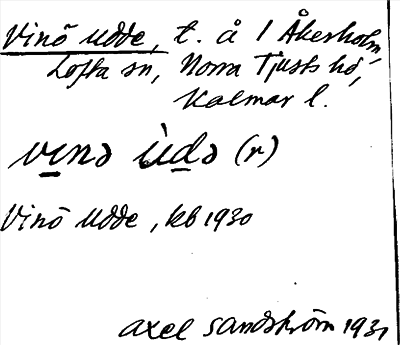 Vinö Udde, t. å 1 Åkerholm,
Lofta sn, Norra Tjusts hd,
Kalmar l.
vinə ùdə (r)
Vinö Udde, kb 1930
Axel Sandström 1931